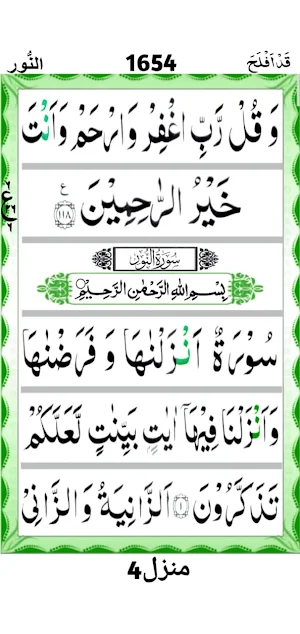 قَدْ اَفْلَحَ 1654 النُّور
وَ قُلْ رَّبِّ اغْفِرْ وَ ارْحَمْ وَ اَنْتَ
خَيْرُ الرّٰحِمِيْنَ ﴿۱۱۸﴾ ع
سُوْرَةُ النُّوْرِ
بِسْمِ اللّٰهِ الرَّحْمٰنِ الرَّحِيْمِ
سُوْرَةٌ اَنْزَلْنٰهَا وَ فَرَضْنٰهَا
وَ اَنْزَلْنَا فِيْهَاۤ اٰيٰتٍۭ بَيِّنٰتٍ لَّعَلَّكُمْ
تَذَكَّرُوْنَ ﴿۱﴾ اَلزَّانِيَةُ وَ الزَّانِيْ
منزل4